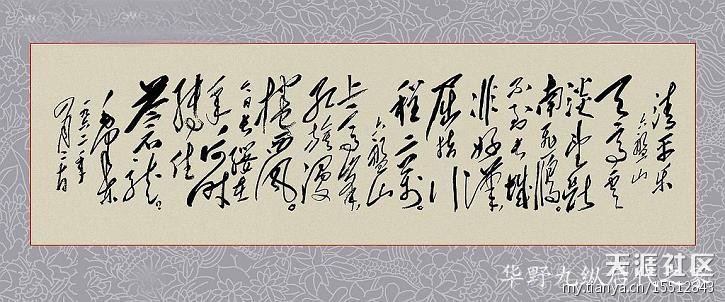 清平乐
六盘山
天高云
淡望断
南飞雁。
不到长城
非好汉，
屈指行
程二万。
六盘山
上高峰，
红旗漫
卷西风。
今日长缨在
手何时
缚住
苍龙。
毛泽东
华野九纵
天涯社区
my.tianya.cn/15512843